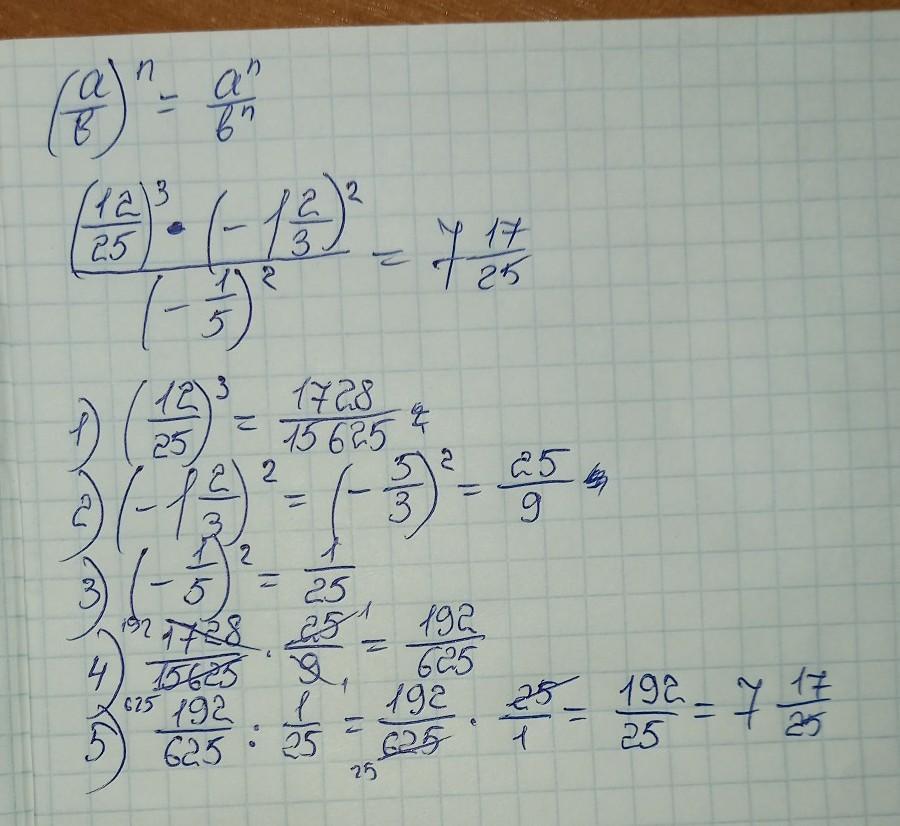 (a/в)ⁿ = aⁿ/вⁿ
((12/25)³ · (-1 2/3)²)/(-1/5)² = 7 17/25
1) (12/25)³ = 1728/15625
2) (-1 2/3)² = (-5/3)² = 25/9
3) (-1/5)² = 1/25
4) 192 1728/15625 625 · 25/9 1 1 = 192/625
5) 192/625 : 1/25 = 192/625 25 · 25/1 = 192/25 = 7 17/25